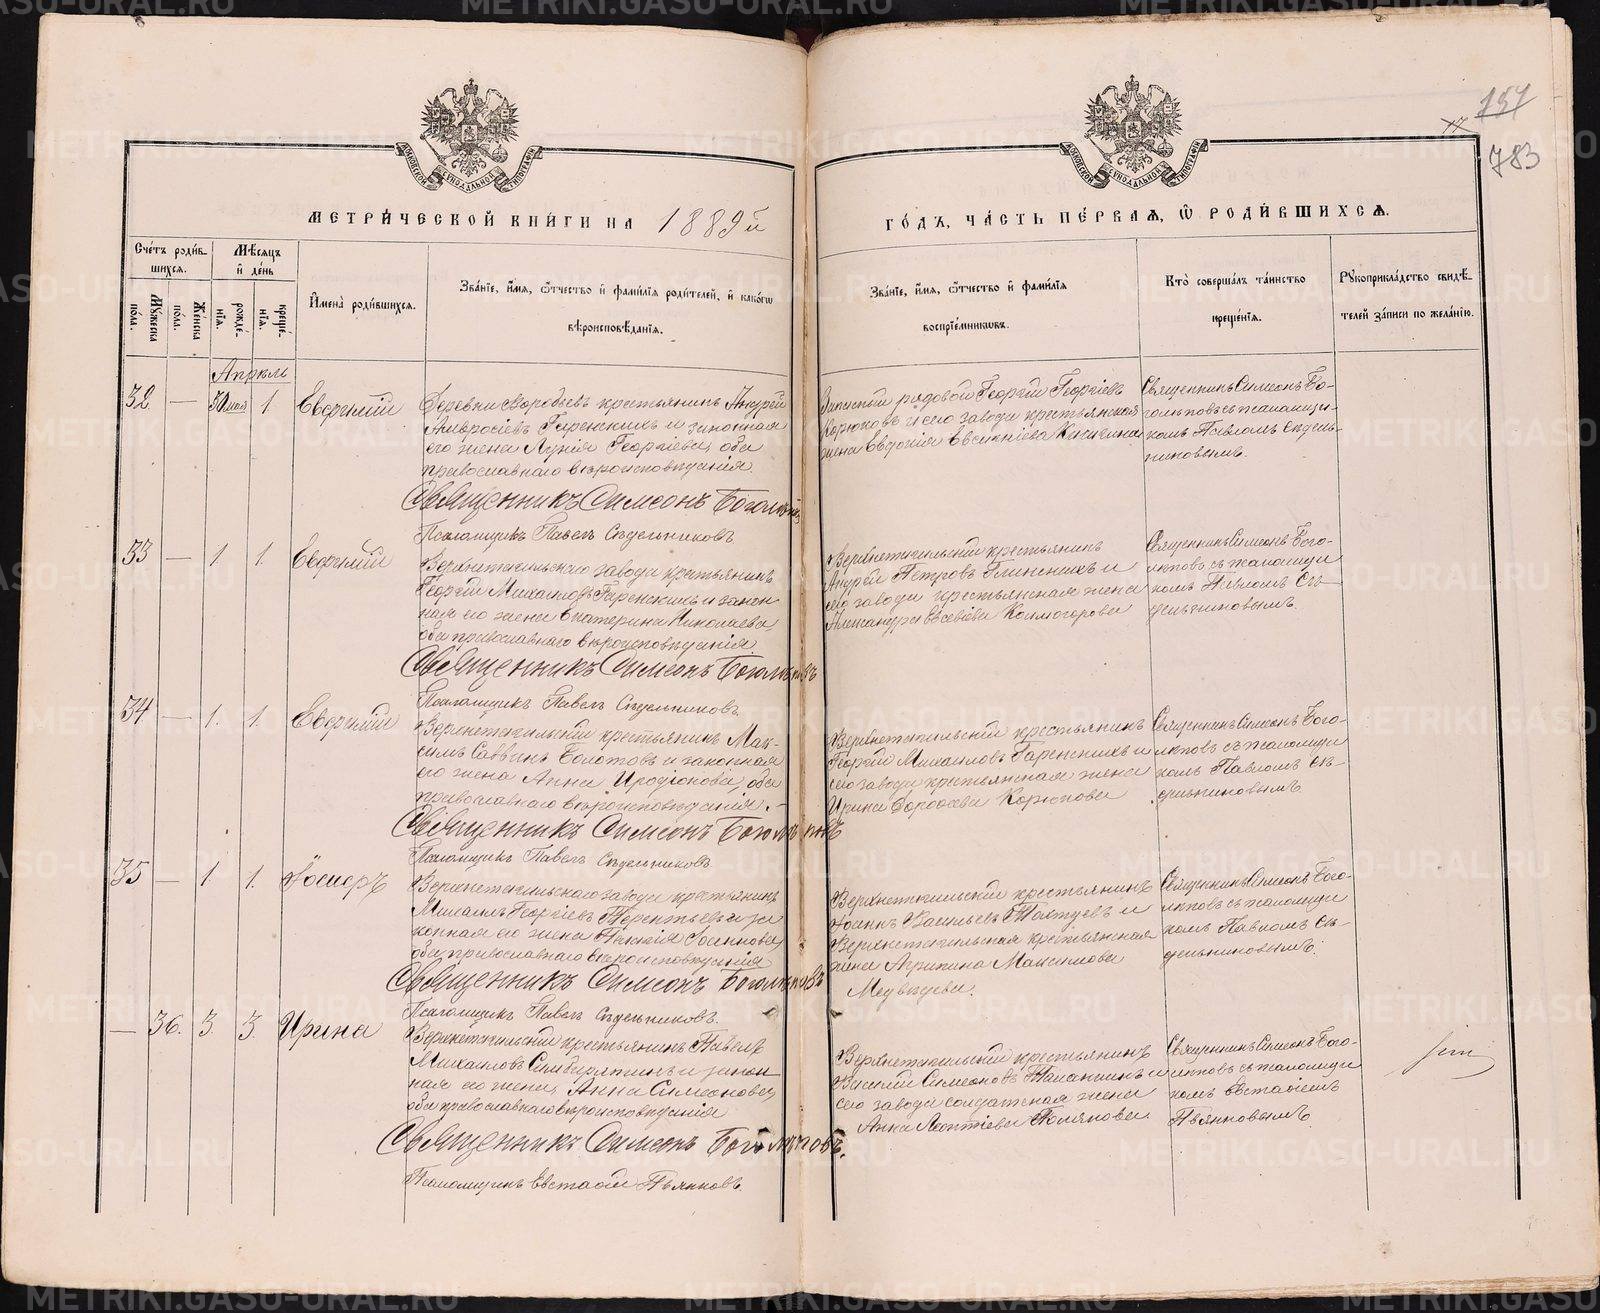 151
783
МОСКОВСКОЙ СѴНОДАЛЬНОЙ ТИПОГРАФІИ
МОСКОВСКОЙ СѴНОДАЛЬНОЙ ТИПОГРАФІИ
МЕТРИ́ЧЕСКОЙ КНИ́ГИ НА 1889й
ГО́ДЪ, ЧА́СТЬ ПЕ́РВАѦ, Ѡ҆ РОДИ́ВШИХСѦ.
Сче́тъ роди́в-
шихсѧ.
Мѣ́сяцъ
и҆ де́нь
Му́жеска
по́ла.
Же́нска
по́ла.
рожде́-
нїѧ.
креще́-
нїѧ.
И҆мена̀ роди́вшихсѧ.
Зва́нїе, и҆́мѧ, ѻ҆́тчество и҆ фами́лїѧ роди́телей, и҆ како́гѡ
вѣроисповѣ́данїѧ.
Зва́нїе, и҆́мѧ, ѻ҆́тчество и҆ фами́лїѧ
воспрїе́мникѡвъ.
Кто̀ соверша́лъ та́инство
креще́нїѧ.
Рꙋкоприкла́дство свидѣ́-
телей за́писи по жела́нїю.
Апрѣль
32 — 30 мая 1 Евфимій
крестьянинъ Андрей
Амвросіевъ Гаренскихъ и законная
его жена Георгіева, оба
православнаго вѣроисповѣданія.
Священникъ Симеонъ
Псаломщикъ Павелъ Сѣдельниковъ
Запасный рядовой Георгій Георгіевъ
Корюковъ и сего завода крестьянская
жена Евдокія
Священникъ Симеонъ Бо-
голѣповъ съ псаломщи-
комъ Павломъ Сѣдель-
никовымъ.
33 — 1 1. Евфимій
Верхнетагильскаго завода крестьянинъ
Георгій Михаиловъ Гаренскихъ и закон-
ная его жена Екатерина Николаева,
оба православнаго вѣроисповѣданія.
Священникъ Симеонъ Боголѣповъ
Псаломщикъ Павелъ Сѣдельниковъ.
Верхнетагильскій крестьянинъ
Андрей Петровъ и
сего завода крестьянская жена
Александра Евсевіева Колмогорова
Священникъ Симеонъ Бого-
лѣповъ съ псаломщи
комъ Павломъ Сѣ-
дельниковымъ.
34 — 1. 1. Евфимій
Верхнетагильскій крестьянинъ Мак-
симъ Саввинъ Болотовъ и законная
его жена Анна Иродіонова, оба
православнаго вѣроисповѣданія.
Священникъ Симеонъ Боголѣповъ
Псаломщикъ Павелъ Сѣдельниковъ
Верхнетагильскій крестьянинъ
Георгій Михаиловъ Гаренскихъ и
сего завода крестьянская жена
Ирина Корюкова
Священникъ Симеонъ Бого-
лѣповъ съ псаломщи
комъ Павломъ Сѣ-
дельниковымъ.
35 — 1 1.
Верхнетагильскаго завода крестьянинъ
Михаилъ Георгіевъ Терентьевъ и за
конная его жена Іоаннова,
оба православнаго вѣроисповѣданія
Священникъ Симеонъ Боголѣповъ
Псаломщикъ Павелъ Сѣдельниковъ.
Верхнетагильскій крестьянинъ
Іоаннъ Васильевъ и
Верхнетагильская крестьянская
жена Агрипина Максимова
Медвѣдева.
Священникъ Симеонъ Бого-
лѣповъ съ псаломщи
комъ Павломъ Сѣ-
дельниковымъ.
— 36. 3. 3. Ирина
Верхнетагильскій крестьянинъ Павелъ
Михаиловъ Симбирятинъ и закон-
ная его жена, Анна Симеонова,
оба православнаго вѣроисповѣданія
Священникъ Симеонъ Боголѣповъ.
Псаломщикъ Евстафій Пьянковъ.
Верхнетагильскій крестьянинъ
Василій Симеоновъ и
сего завода солдатская жена
Анна Леонтіева Полякова
Священникъ Симеонъ Бого-
лѣповъ съ псаломщи
комъ Евстафіемъ
Пьянковымъ.
METRIKI.GASO-URAL.RU